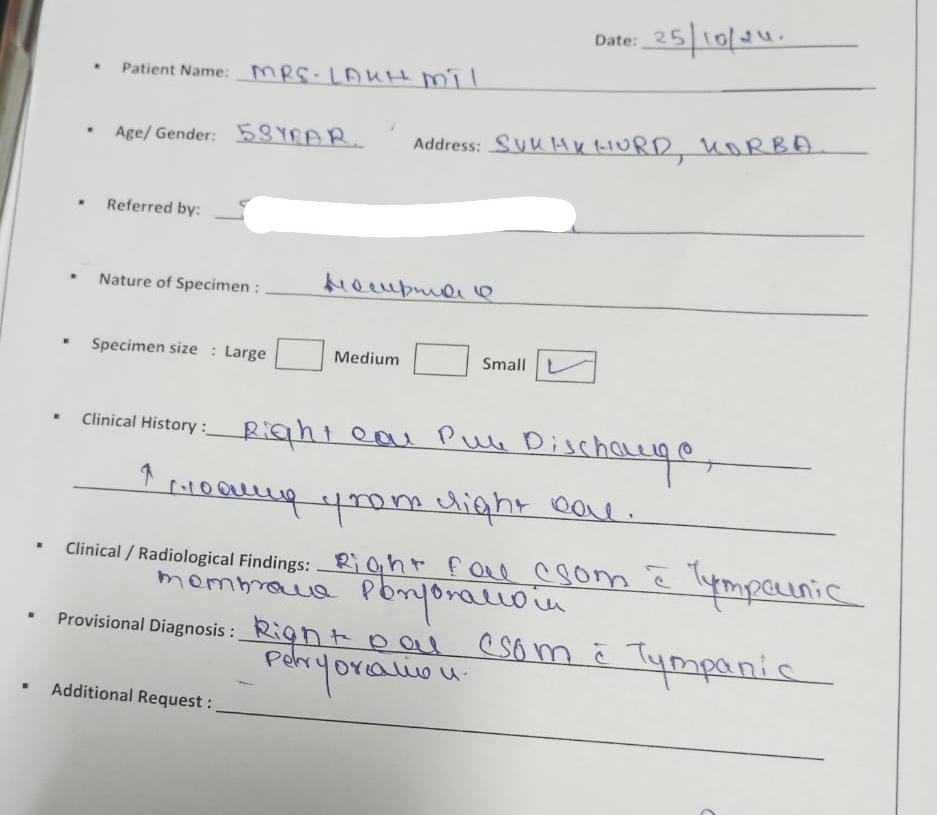 Date: 25/10/24.
Patient Name: MRS. LAKH MTI
Age/ Gender: 58 YEAR. Address: SUKHKHURD, KORBA
Referred by:
Nature of Specimen :
Specimen size : Large Medium Small
Clinical History : Right ear Pus Discharge,
from right ear.
Clinical / Radiological Findings: Right Ear CSOM c̄ Tympanic
membrane Perforation
Provisional Diagnosis : Right ear CSOM c̄ Tympanic
Perforation.
Additional Request :